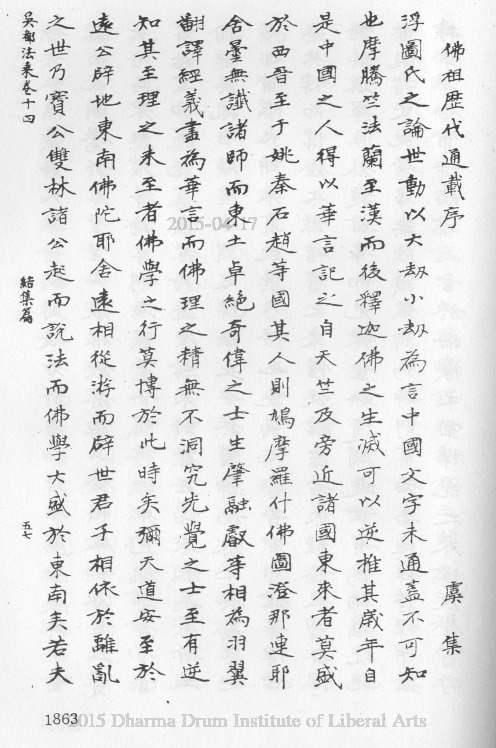 佛祖歷代通載序
虞集
浮圖氏之論世動以大劫小劫為言中國文字未通蓋不可知
也摩騰竺法蘭至漢而後釋迦佛之生滅可以逆推其歲年自
是中國之人得以華言記之自天竺及旁近諸國東來者莫盛
於西晉至于姚秦石趙等國其人則鳩摩羅什佛圖澄那連耶
舍曇無讖諸師而東土卓絕奇偉之士生肇融叡等相為羽翼
翻譯經義盡為華言而佛理之精無不洞究先覺之士至有逆
知其至理之未至者佛學之行莫博於此時矣彌天道安至於
遠公辟地東南佛陀耶舍遠相從游而辟世君子相依於離亂
之世乃寶公雙林諸公起而說法而佛學大盛於東南矣若夫
吳都法乘卷十四
結集篇
五七
2015-04-17
1863
2015 Dharma Drum Institute of Liberal Arts